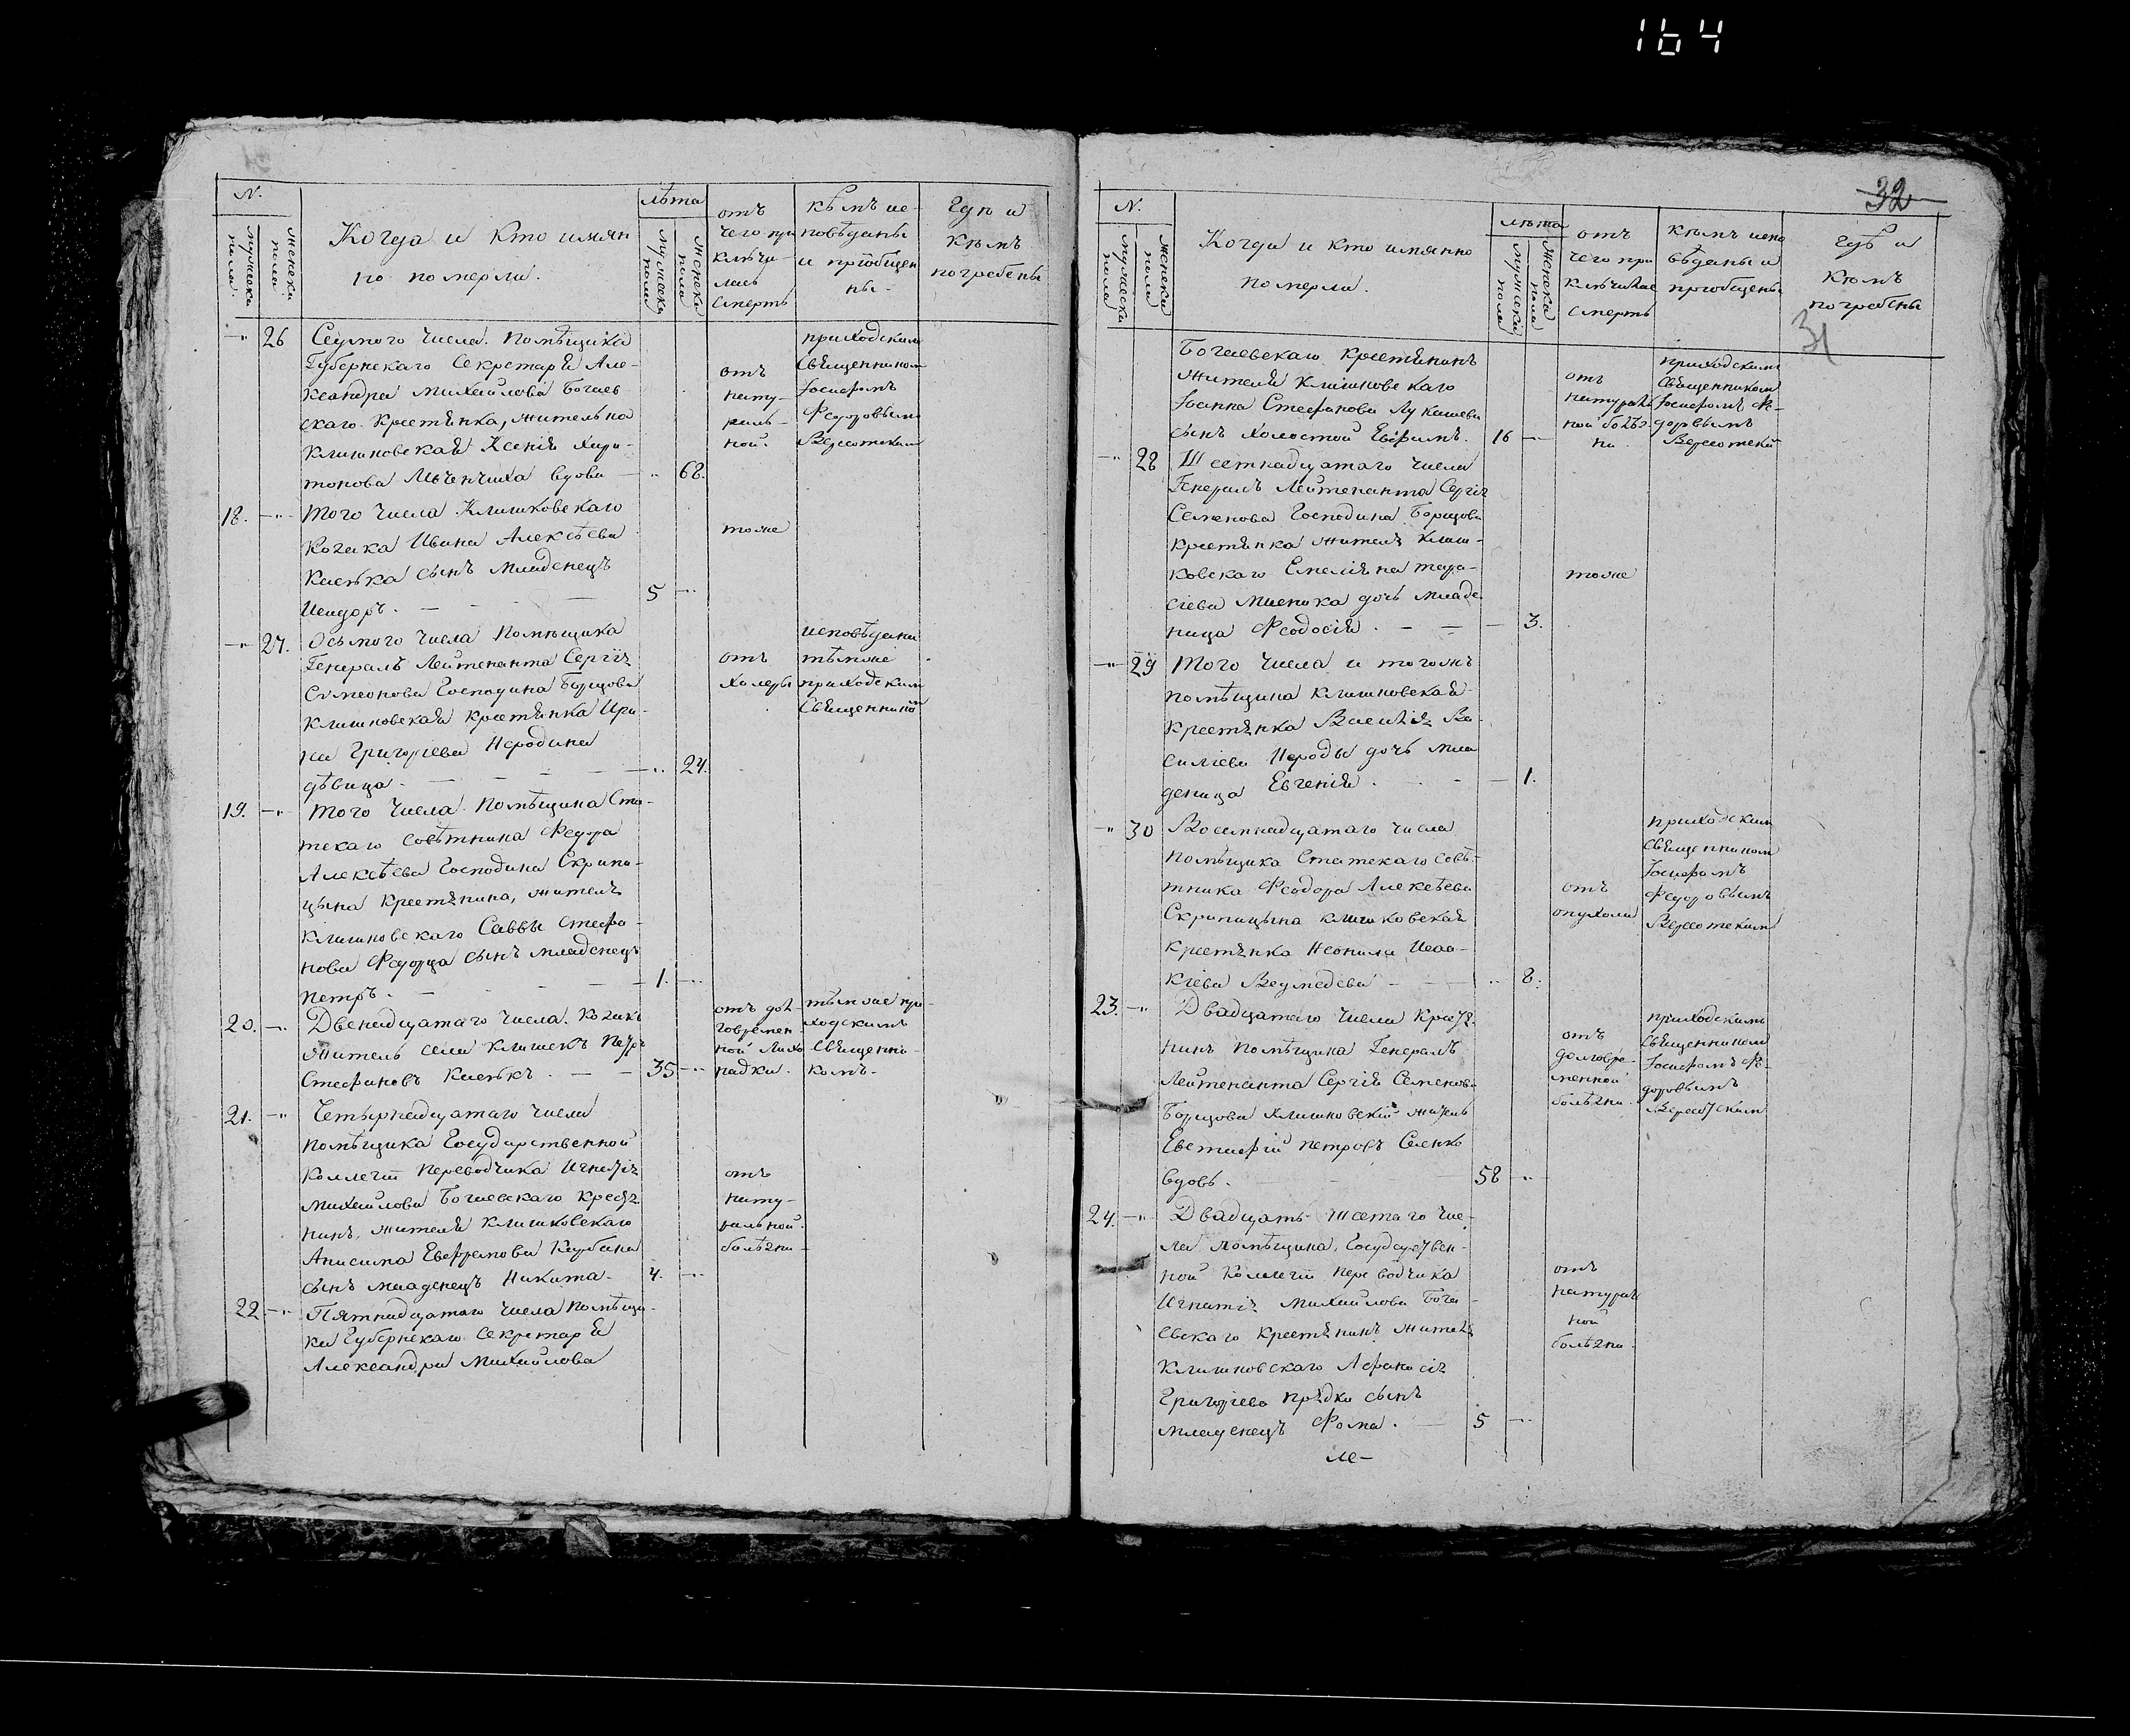 164
N.
мужеска пола.
женска пола
Когда и кто имян
но померли.
лѣта
мужеска пола
женска пола
отъ
чего при
ключи-
лась
смерть
кѣмъ ис-
повѣданы
и пріобщен
ны-
Гдѣ и
кѣмъ
погребены
26 Седмого числа. Помѣщика
Губернскаго Секретаря Але-
ксандра Михайлова Богаев
скаго крестянка, жительна
Клишковская Ксенія Хари-
тонова вдова 68.
отъ
нату-
раль-
ной.
приходским
Священником
Іосифомъ
Федоровым
18. Того числа Клишковскаго
Козака Ивана Алексѣева
сынъ младенецъ
Исидоръ. 5
тоже
27. Осьмого числа Помѣщика
Генералъ Лейтенанта Сергія
Симеонова Господина Борщова
Клишковская крестянка Ири-
на Григоріева Неродина
дѣвица. 24.
отъ
холеры
исповѣдана
тѣмже
приходским
Священником
19. Того числа Помѣщика Ста-
тскаго Совѣтника Федора
Алексѣева Господина Скрипи-
цына крестянина, жителя
Клишковскаго Саввы Стефа-
нова Федорца сынъ младенецъ
Петръ. 1.
20. Двенадцатаго числа. Козакъ
житель села Клишекъ Петръ
Стефановъ 35
отъ дол-
говремен-
ной лихо
радки.
тѣмже при-
ходскимъ
Священни-
комъ-
21. Четырнадцатаго числа
помѣщика Государственной
Коллегіи Переводчика Игнатія
Михайлова Богаевскаго крестя
нинъ, жителя Клишковскаго
Анисима Евфремова
сынъ младенецъ Никита. 4.
отъ
нату-
ральной
болѣзни-
22 Пятнадцатаго числа помѣщи-
ка Губернскаго Секретаря
Александра Михайлова
32
31
N.
мужеска пола
женска пола
Когда и кто имянно
померли.
лѣта
мужеска пола
женска пола
отъ
чего при
ключилась
смерть
кѣмъ испо
вѣданы и
пріобщены
Гдѣ и
кѣмъ
погребены
Богаевскаго крестянинъ
жителя Клишковскаго
Іоанна Стефанова Лукашева
сынъ холостой Евфимъ. 16
отъ
натураль
ной болѣз-
ни.
приходским
Священником
Іосифомъ Фе-
доровымъ
28 Шестнадцатаго числа
Генералъ Лейтенанта Сергія
Семенова Господина Борщова
крестянка жителя Клиш-
ковскаго Емеліяна Тара-
сіева дочь младе-
ница Феодосія. 3.
тоже
29 Того числа и тогожъ
помѣщика Клишковская
крестянка Василія Ва-
силіева Нероды дочь мла
деница Евгенія. 1.
30 Восемнадцатаго числа
помѣщика Статскаго Совѣ-
тника Феодора Алексѣева
Скрипицына Клишковская
крестянка Неонила Исаа-
кіева Ведмедева 8.
отъ
опухоли
приходским
Священником
Іосифомъ
Федоровымъ
23. Двадцатаго числа крестя
нинъ помѣщика Генералъ
Лейтенанта Сергія Семенова
Борщова Клишковскій житель
Евстафій Петровъ Сенко
вдовъ. 58
отъ
долговре-
менной
болѣзни.
приходскимъ
Священником
Іосифомъ Фе-
доровымъ
24. Двадцать шестаго чис-
ла помѣщика, Государствен-
ной Коллегіи Переводчика
Игнатія Михайлова Бога-
евскаго крестянинъ жителя
Клишковскаго Афанасія
Григоріева Прядки сынъ
младенецъ Фома. 5
отъ
натураль
ной
болѣзни.
ле-